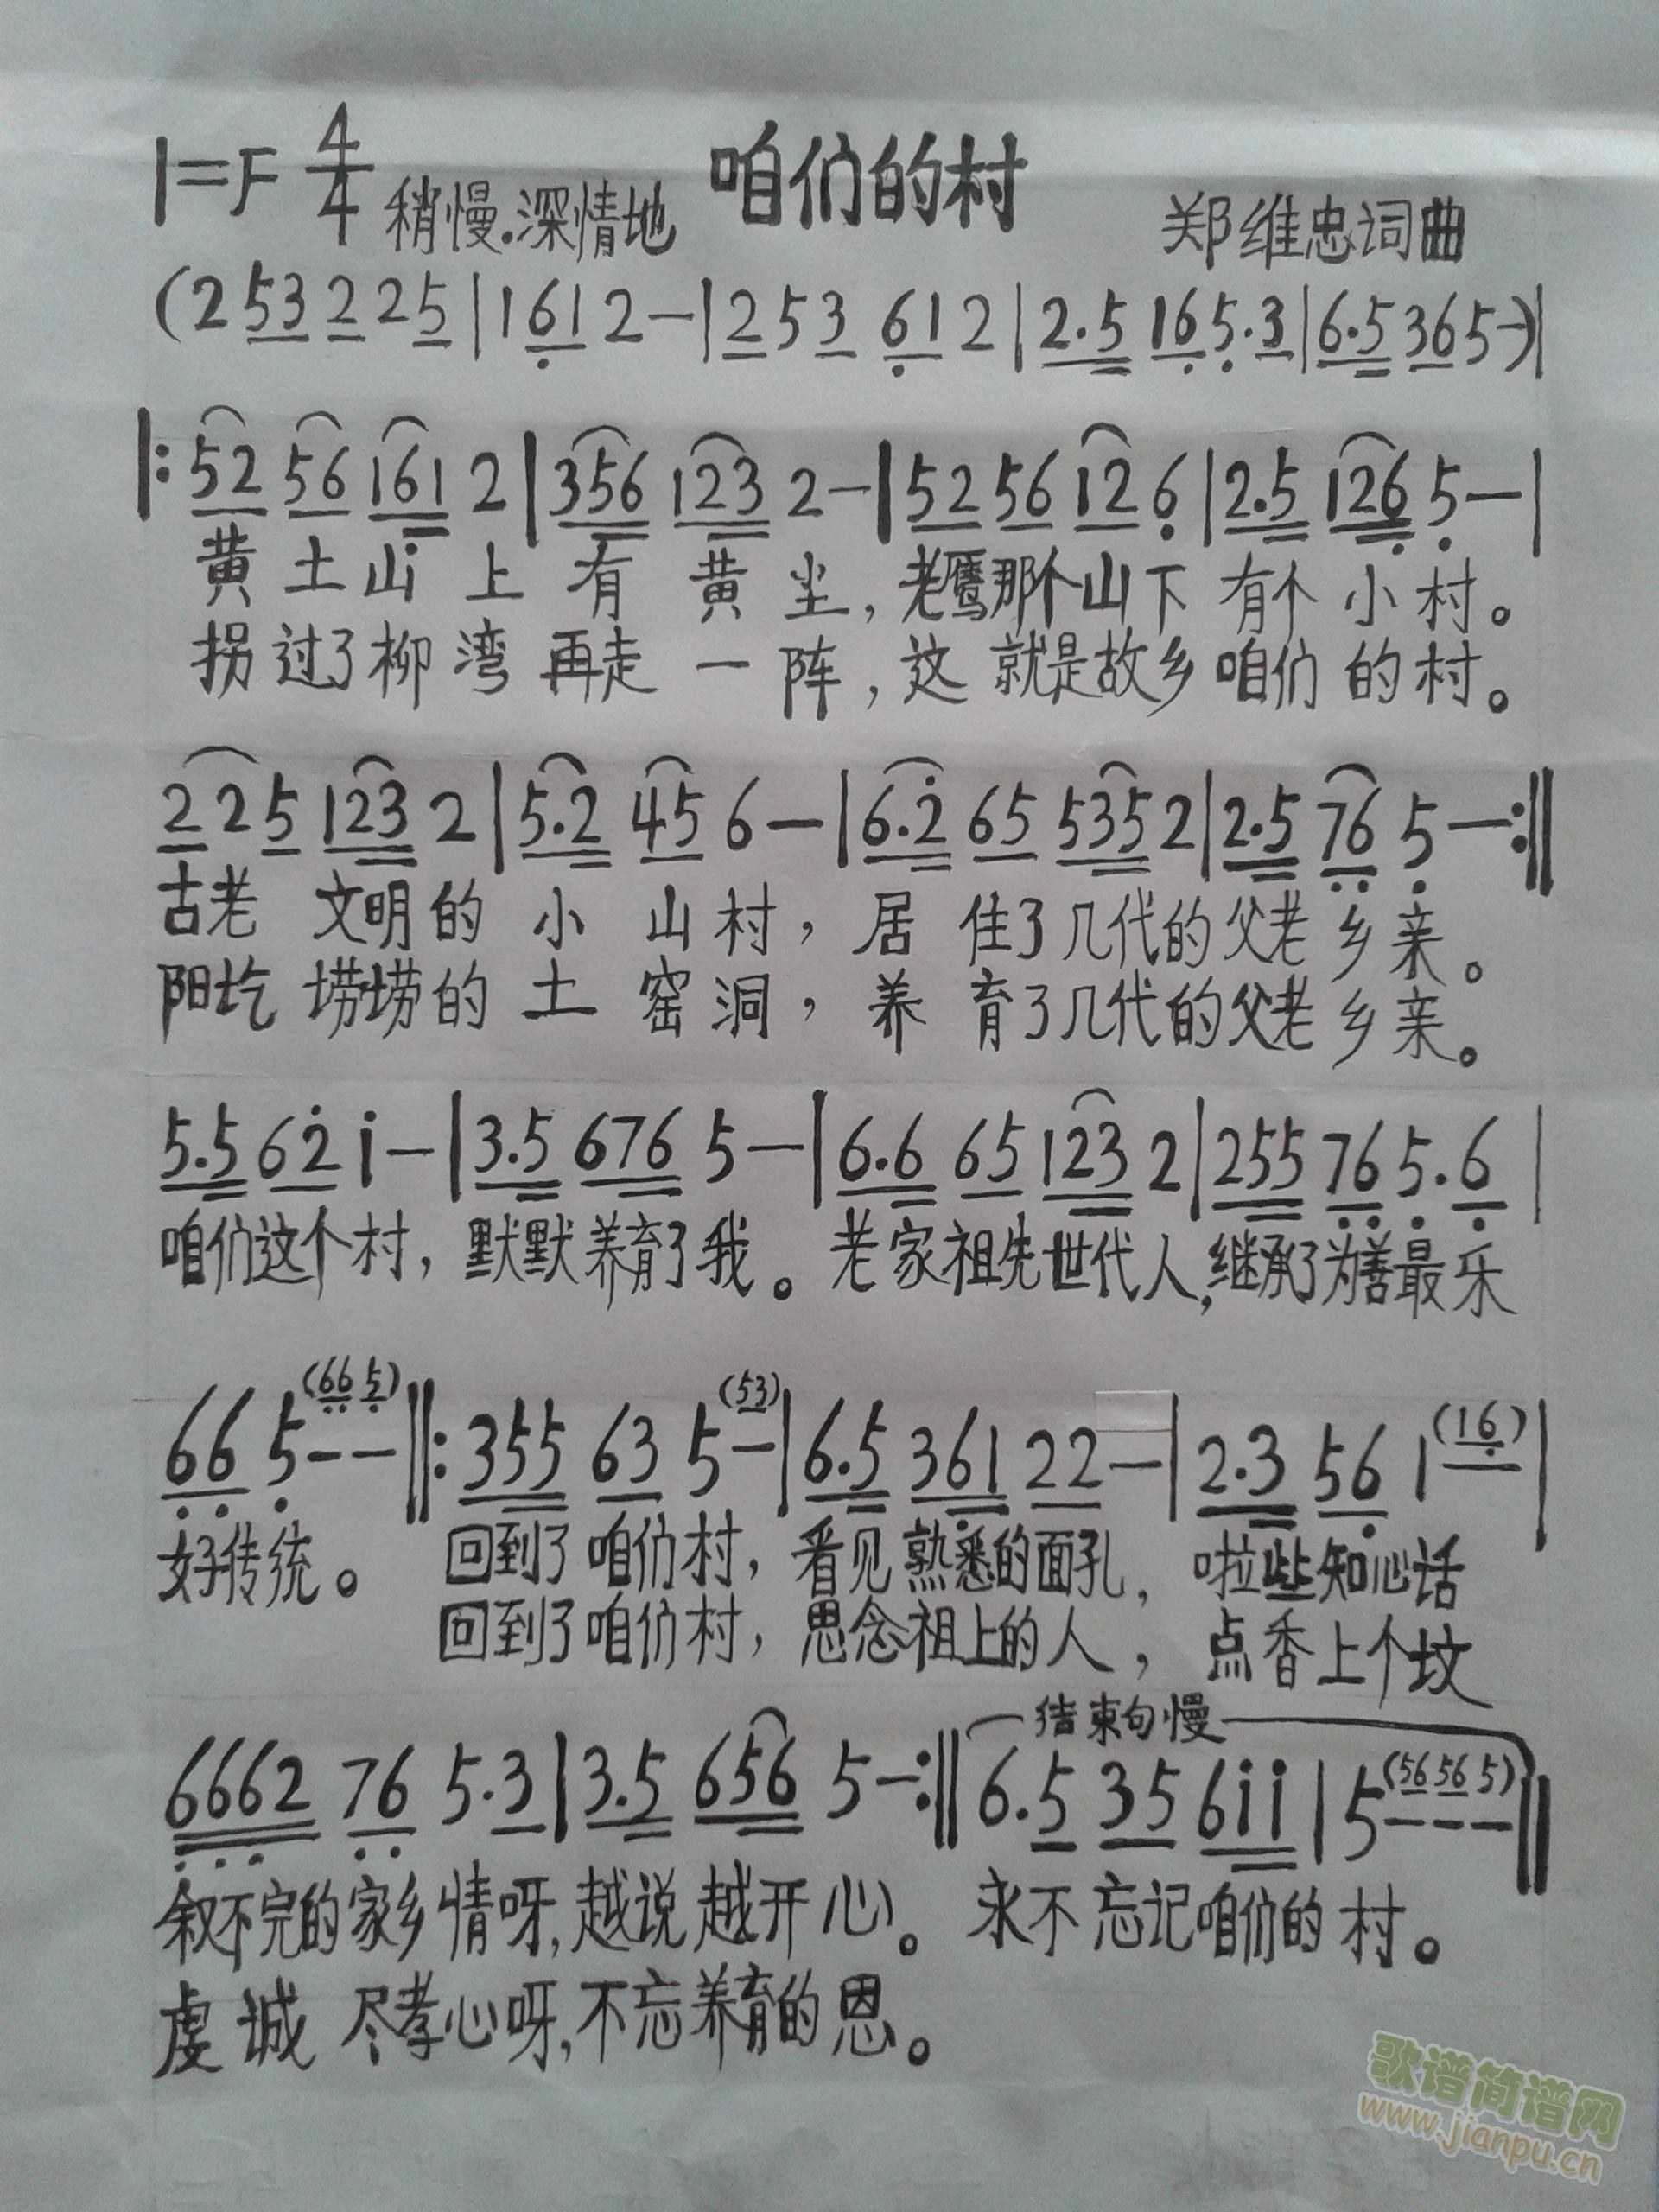 1=F 4/4 稍慢.深情地 咱们的村 郑维忠词曲
(2 53 2 25|1 61 2-|2 53 61 2|2.5 16 5.3|6.5 36 5-)|
|:52 56 161 2|356 123 2-|52 56 12 6|2.5 126 5-|
黄土山上有黄尘,老鹰那个山下有个小村。
拐过了柳湾再走一阵,这就是故乡咱们的村。
2 2 5 123 2|5.2 45 6-|6.2 65 535 2|2.5 76 5-:‖
古老文明的小山村,居住了几代的父老乡亲。
阳圪塄塄的土窑洞,养育了几代的父老乡亲。
5.5 62 1-|3.5 676 5-|6.6 65 123 2|255 76 5.6|
咱们这个村,默默养育了我。老家祖先世代人,继承了为善最乐
66 5--(66 5)‖:355 63 5-(53)|6.5 361 22-|2.3 56 1(16)|
好传统。 回到了咱们村,看见熟悉的面孔,啦些知心话
回到了咱们村,思念祖上的人,点香上个坟
结束句慢
6662 76 5.3|3.5 656 5-:‖6.5 35 6ii|5---(56 56 5)‖
叙不完的家乡情呀,越说越开心。永不忘记咱们的村。
虔诚尽孝心呀,不忘养育的恩。
歌谱简谱网
www.jianpu.cn